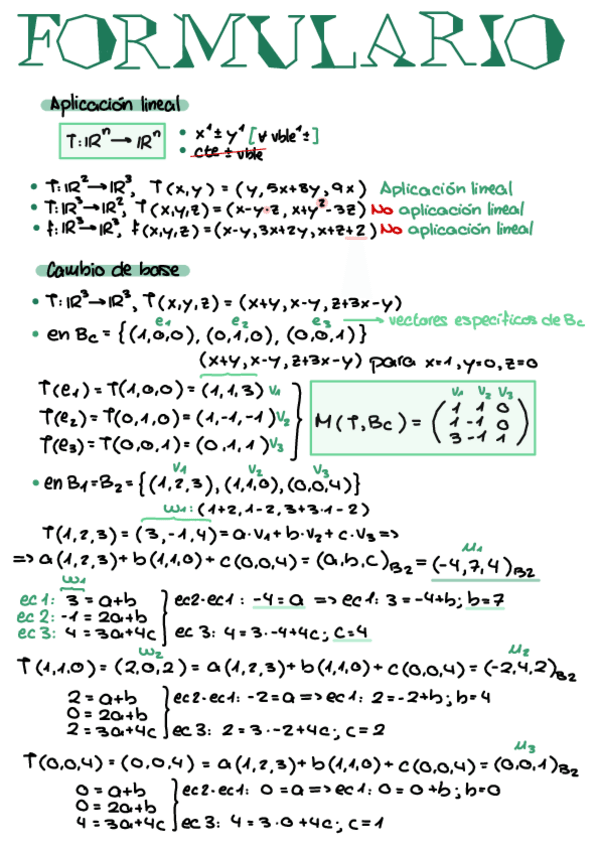 FORMULARIO
Aplicación lineal
T: ℝⁿ → ℝⁿ
• x¹ ± y¹ [∀ vble¹ ±]
• cte ± vble
• T: ℝ² → ℝ³, T(x,y) = (y, 5x+8y, 9x) Aplicación lineal
• T: ℝ³ → ℝ², T(x,y,z) = (x-y·z, x+y²-3z) No aplicación lineal
• f: ℝ³ → ℝ³, f(x,y,z) = (x-y, 3x+2y, x+z+2) No aplicación lineal
Cambio de base
• T: ℝ³ → ℝ³, T(x,y,z) = (x+y, x-y, z+3x-y)
e1 e2 e3 → vectores específicos de Bc
• en Bc = {(1,0,0), (0,1,0), (0,0,1)}
(x+y, x-y, z+3x-y) para x=1, y=0, z=0
T(e1) = T(1,0,0) = (1,1,3) v1
T(e2) = T(0,1,0) = (1,-1,-1) v2
T(e3) = T(0,0,1) = (0,1,1) v3
v1 v2 v3
1 1 0
M(T,Bc) = 1 -1 0
3 -1 1
v1 v2 v3
• en B1=B2 = {(1,2,3), (1,1,0), (0,0,4)}
w1: (1+2, 1-2, 3+3·1-2)
T(1,2,3) = (3,-1,4) = a·v1 + b·v2 + c·v3 =>
μ1
=> a(1,2,3) + b(1,1,0) + c(0,0,4) = (a,b,c)B2 = (-4,7,4)B2
w1
ec1: 3 = a+b
ec2: -1 = 2a+b
ec3: 4 = 3a+4c
ec2-ec1: -4 = a => ec1: 3 = -4+b; b=7
ec3: 4 = 3·-4+4c; c=4
w2 μ2
T(1,1,0) = (2,0,2) = a(1,2,3) + b(1,1,0) + c(0,0,4) = (-2,4,2)B2
2 = a+b
0 = 2a+b
2 = 3a+4c
ec2-ec1: -2 = a => ec1: 2 = -2+b; b=4
ec3: 2 = 3·-2+4c; c=2
μ3
T(0,0,4) = (0,0,4) = a(1,2,3) + b(1,1,0) + c(0,0,4) = (0,0,1)B2
0 = a+b
0 = 2a+b
4 = 3a+4c
ec2-ec1: 0 = a => ec1: 0 = 0+b; b=0
ec3: 4 = 3·0+4c; c=1